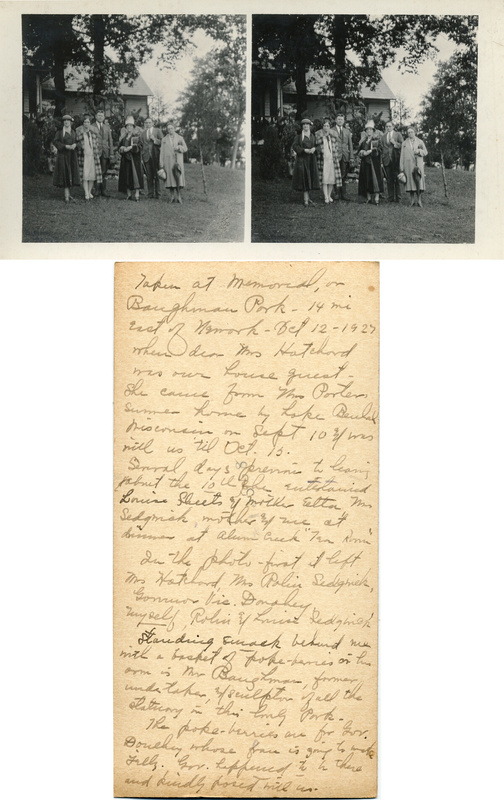 Taken at Memorial, or
Baughman Park - 14 mi
East of Newark - Oct 12 - 1927
when dear Mrs Hatchord
was our house guest -
She came from Mrs Porters
Summer home by Lake Beulah
Wisconsin on Sept 10 & was
with us 'til Oct. 15.
Several days previous to leaving
about the 10th she entertained
Louise Sheets & Mother Etta Mrs
Sedgwick, mother & me at
dinner at Alum Creek "Inn"
In the photo - first at left
Mrs Hatchord, Mrs Robin Sedgwick,
Governor Vic. Donahey
Myself, Robin & Louise Sedgwick
Standing smack behind me
with a basket of poke-berries on his
arm is Mr Baughman, former
undertaker, & sculptor of all the
statuary in this lovely Park.
The poke-berries are for Gov.
Donahey whose frau is going to make
Jelly. Gov. happened to be there
and kindly posed with us.